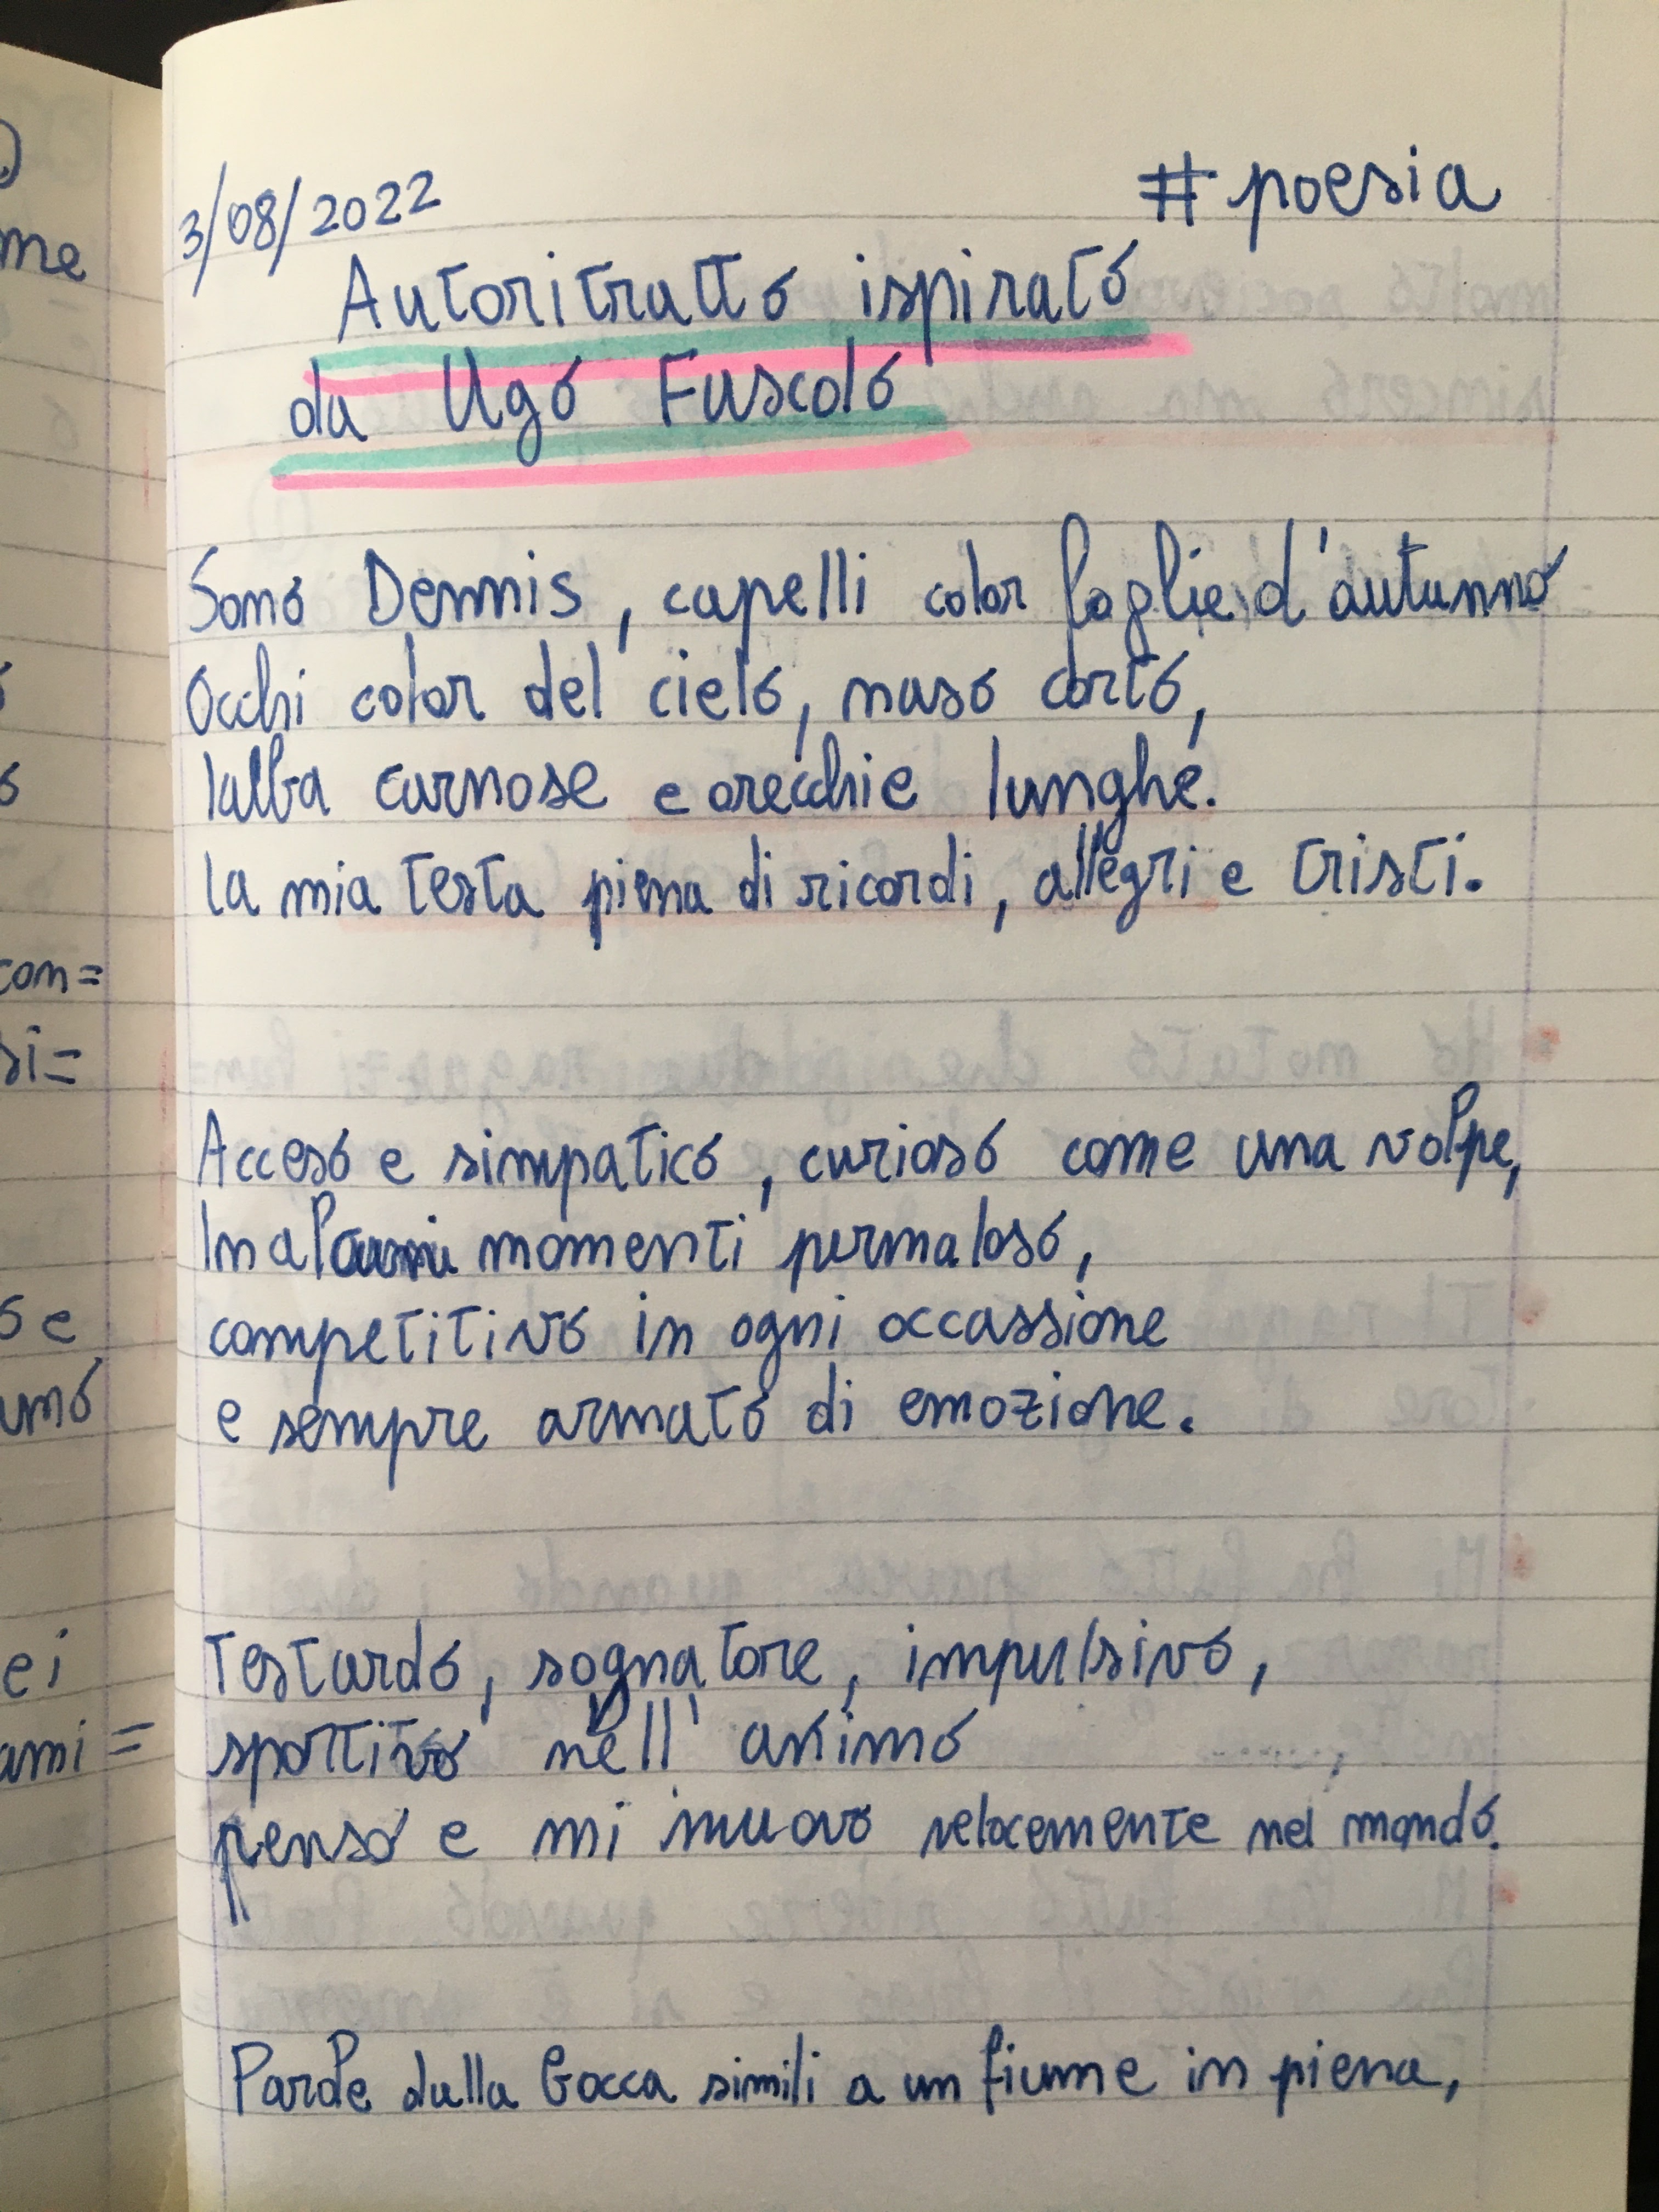 3/08/2022
#poesia
Autoritratto ispirato
da Ugo Fuscolo
Sono Dennis, capelli color foglie d'autunno
Occhi color del cielo, naso corto,
labba carnose e orecchie lunghe.
la mia testa piena di ricordi, allegri e tristi.
Acceso e simpatico, curioso come una volpe,
In alcuni momenti permaloso,
competitivo in ogni occassione
e sempre armato di emozione.
Testardo, sognatore, impulsivo,
sportivo nell'animo
penso e mi muovo velocemente nel mondo.
Parole dalla bocca simili a un fiume in piena,
me
con=
si=
o e
ei
ami=